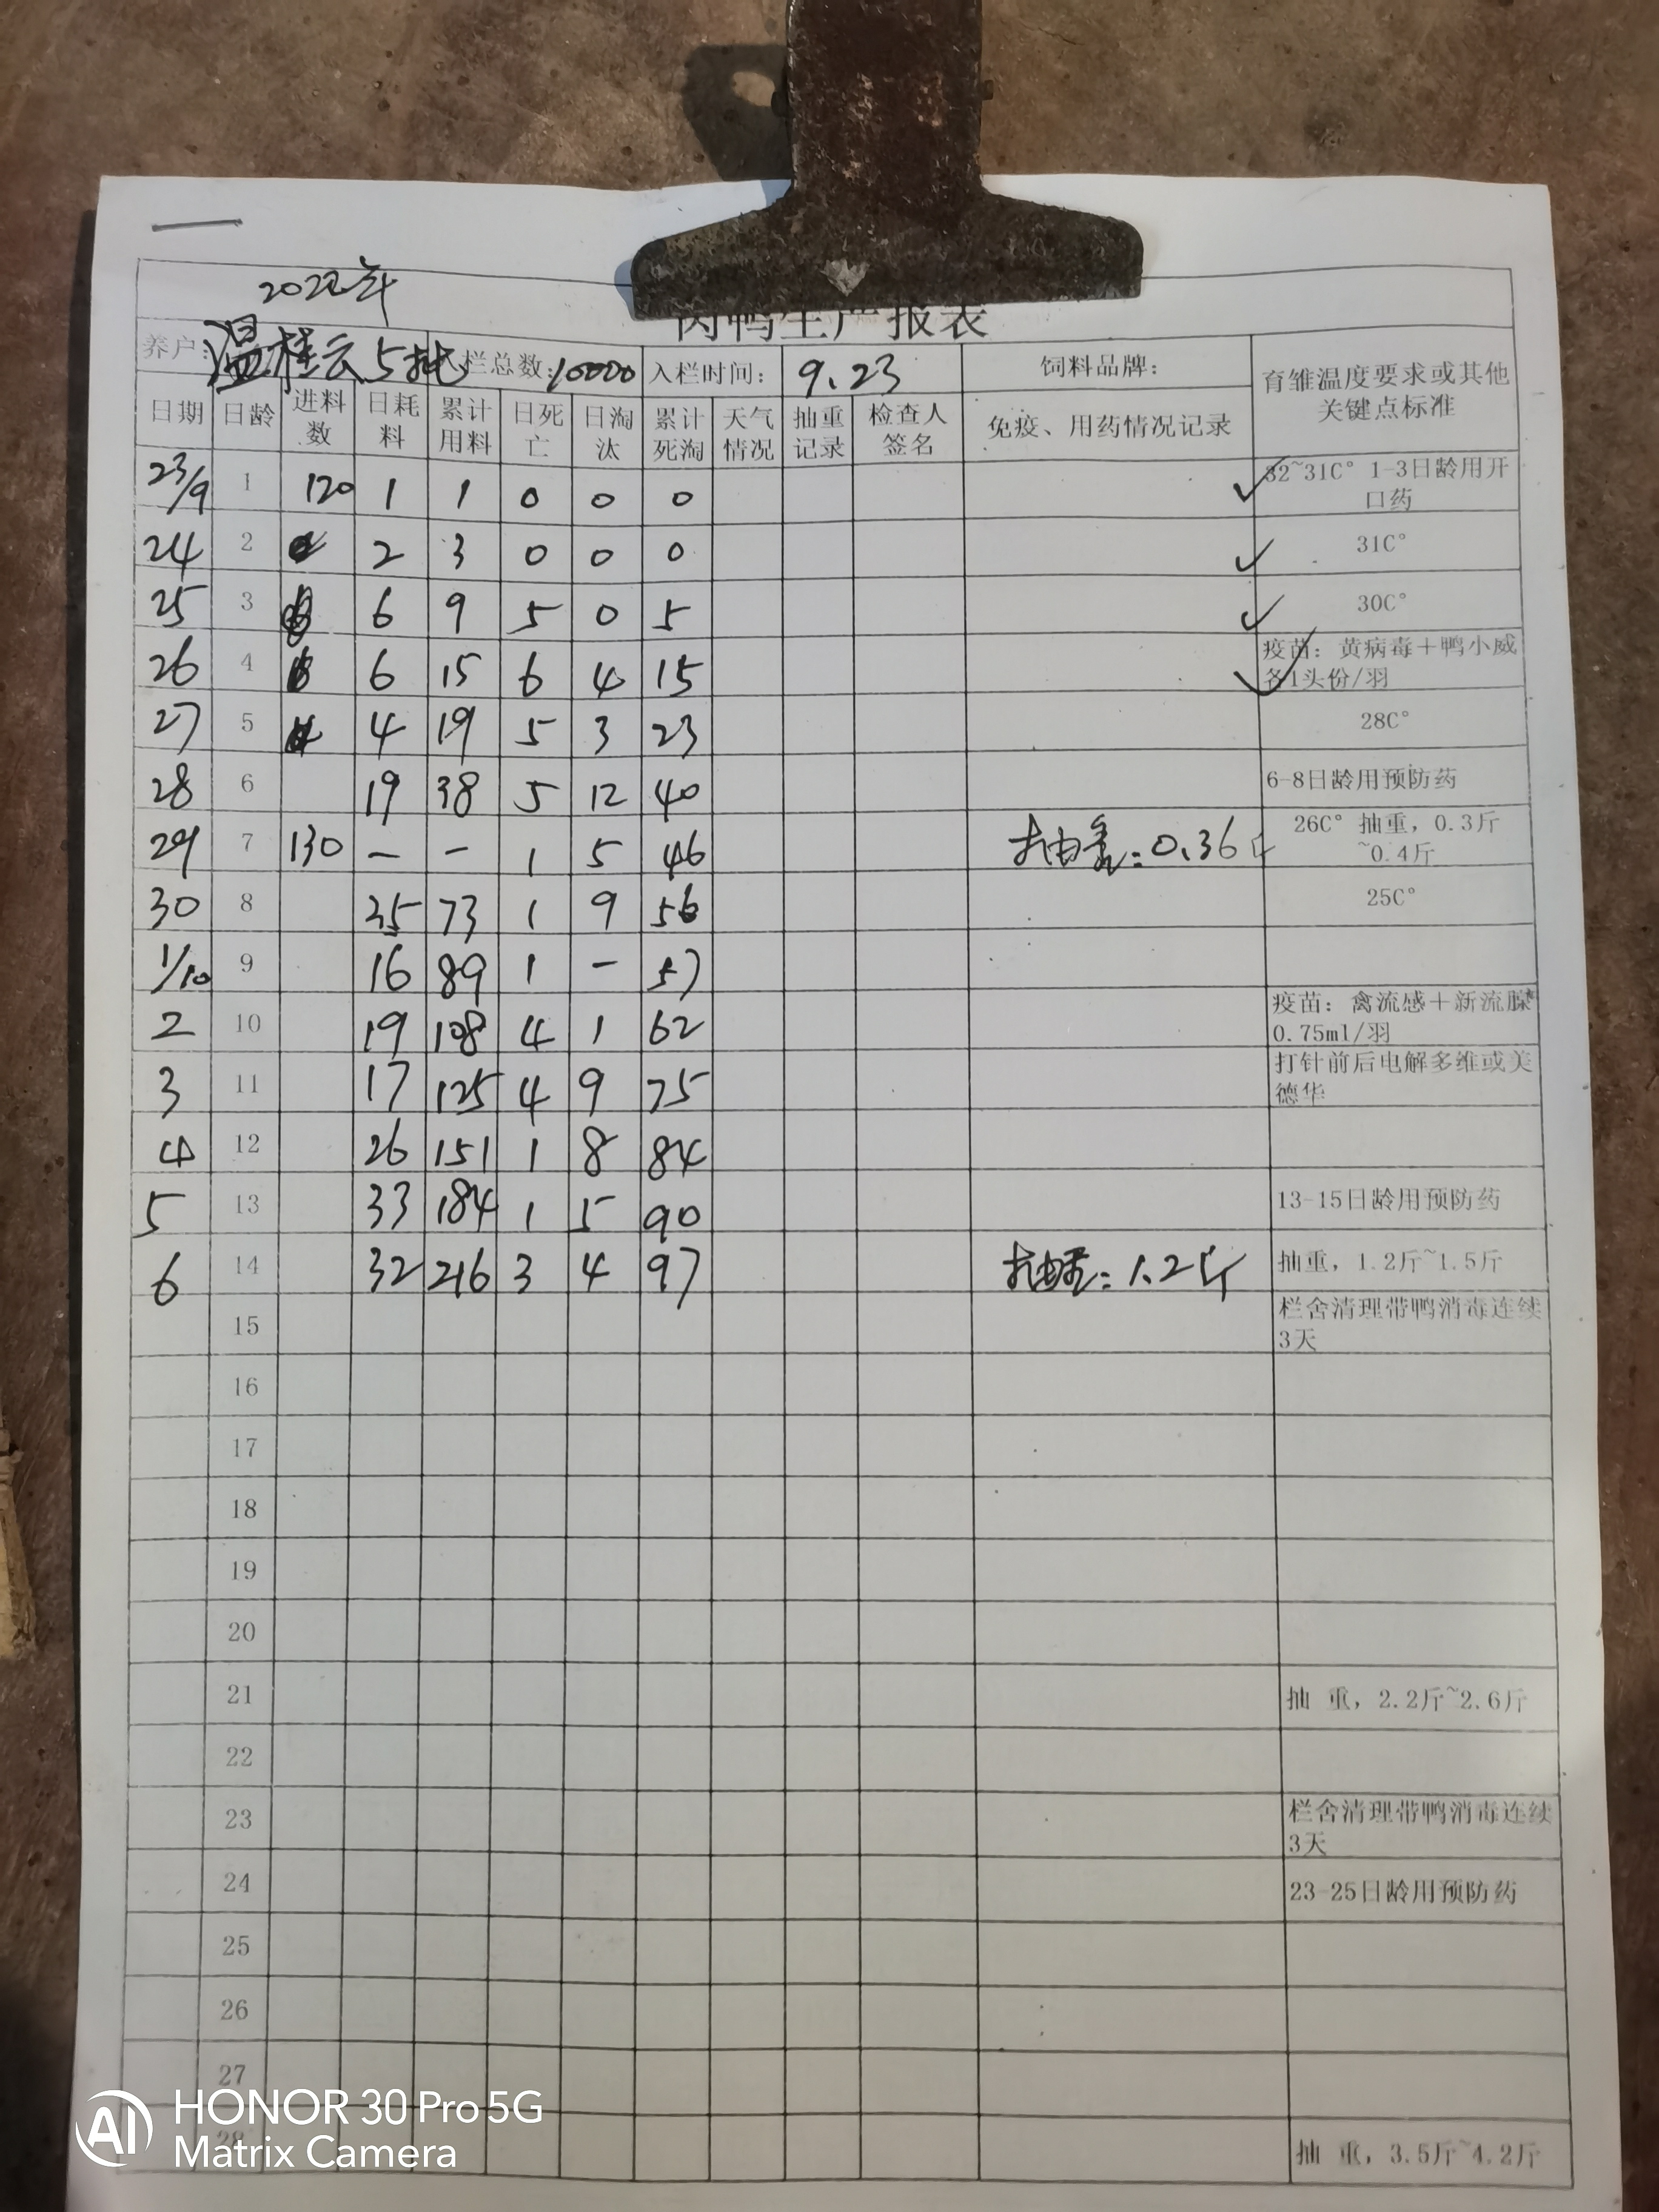 2022年
肉鸭生产报表
养户: 温桂云5批 入栏总数: 10000 入栏时间: 9.23 饲料品牌: 育雏温度要求或其他关键点标准
日期 日龄 进料数 日耗料 累计用料 日死亡 日淘汰 累计死淘 天气情况 抽重记录 检查人签名 免疫、用药情况记录
23/9 1 120 1 1 0 0 0 ✓ 32~31C° 1-3日龄用开口药
24 2 2 3 0 0 0 ✓ 31C°
25 3 6 9 5 0 5 ✓ 30C°
26 4 6 15 6 4 15 ✓ 疫苗: 黄病毒+鸭小威各1头份/羽
27 5 4 19 5 3 23 28C°
28 6 19 38 5 12 40 6-8日龄用预防药
29 7 130 — — 1 5 46 抽重: 0.36斤 26C° 抽重, 0.3斤~0.4斤
30 8 35 73 1 9 56 25C°
1/10 9 16 89 1 — 57
2 10 19 108 4 1 62 疫苗: 禽流感+新流腺 0.75ml/羽
3 11 17 125 4 9 75 打针前后电解多维或美德华
4 12 26 151 1 8 84
5 13 33 184 1 5 90 13-15日龄用预防药
6 14 32 216 3 4 97 抽重: 1.2斤 抽重, 1.2斤~1.5斤
15 栏舍清理带鸭消毒连续3天
16
17
18
19
20
21 抽 重, 2.2斤~2.6斤
22
23 栏舍清理带鸭消毒连续3天
24 23-25日龄用预防药
25
26
27
28 抽 重, 3.5斤~4.2斤
AI HONOR 30 Pro 5G
Matrix Camera